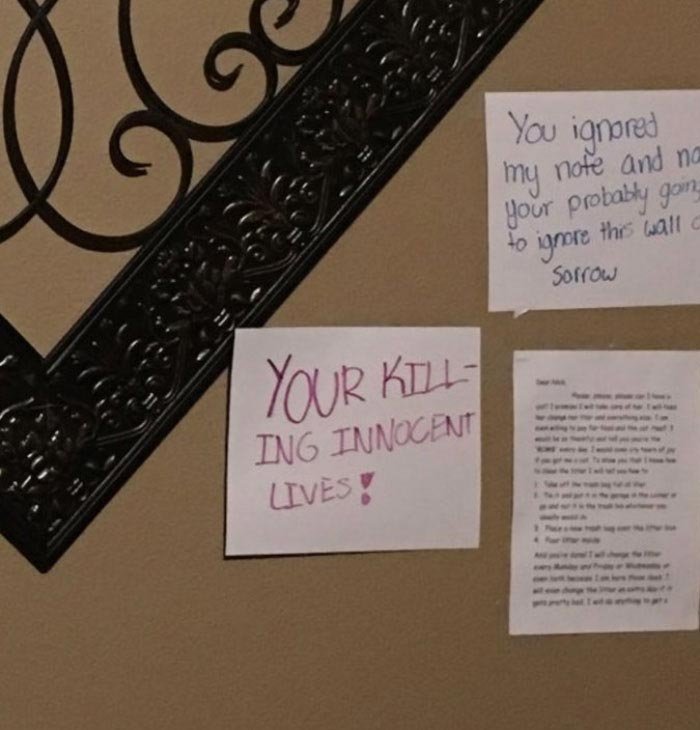 You ignored
my note and no
your probably going
to ignore this wall o
sorrow
YOUR KILL-
ING INNOCENT
LIVES!
Dear Nick,
Please, please, please can I have a
cat? I promise I will take care of her. I will feed
her change her litter and everything else. I am
even willing to pay for food and the cat itself. I
would be so thankful and tell you you're the
every day. I would even cry tears of joy
if you got me a cat. To show you that I know how
to clean the litter I will tell you how to
1. Take off the trash bag full of litter
2. Tie it and put it in the garage in the corner or
go and put it in the trash bin whichever you
usually would do
3. Place a new trash bag over the litter box
4. Pour litter inside
And you're done! I will change the litter
every Monday and Friday or Wednesday or
even both because I am here those days. I
will even change the litter an extra day if it
gets pretty bad. I will do anything to get a